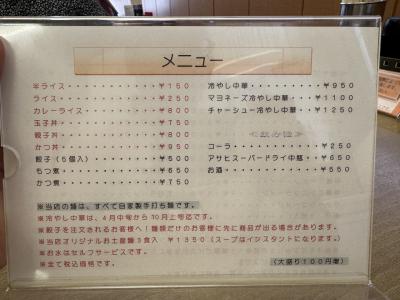 メニュー
半ライス・・・・・・・・・・・￥150
ライス・・・・・・・・・・・・￥250
カレーライス・・・・・・・・・￥800
玉子丼・・・・・・・・・・・・￥750
餃子丼・・・・・・・・・・・・￥800
かつ丼・・・・・・・・・・・・￥950
餃子（5個入）・・・・・・・・￥500
もつ煮・・・・・・・・・・・・￥650
かつ煮・・・・・・・・・・・・￥750
冷やし中華・・・・・・・・・・￥950
マヨネーズ冷やし中華・・・・￥1100
チャーシュー冷やし中華・・・￥1250
≪飲み物≫
コーラ・・・・・・・・・・・・￥250
アサヒスーパードライ中瓶・・￥650
お酒・・・・・・・・・・・・・￥550
※当店の麺は、すべて自家製手打ち麺です。
※冷やし中華は、4月中旬から10月上旬迄です。
※餃子を注文されるお客様へ！麺類だけのお客様に先に商品が出る場合があります。
※当店オリジナルお土産麺3食入 ￥1350（スープはインスタントになります。）
※お水はセルフサービスです。
※全て税込価格です。
（大盛り100円増）